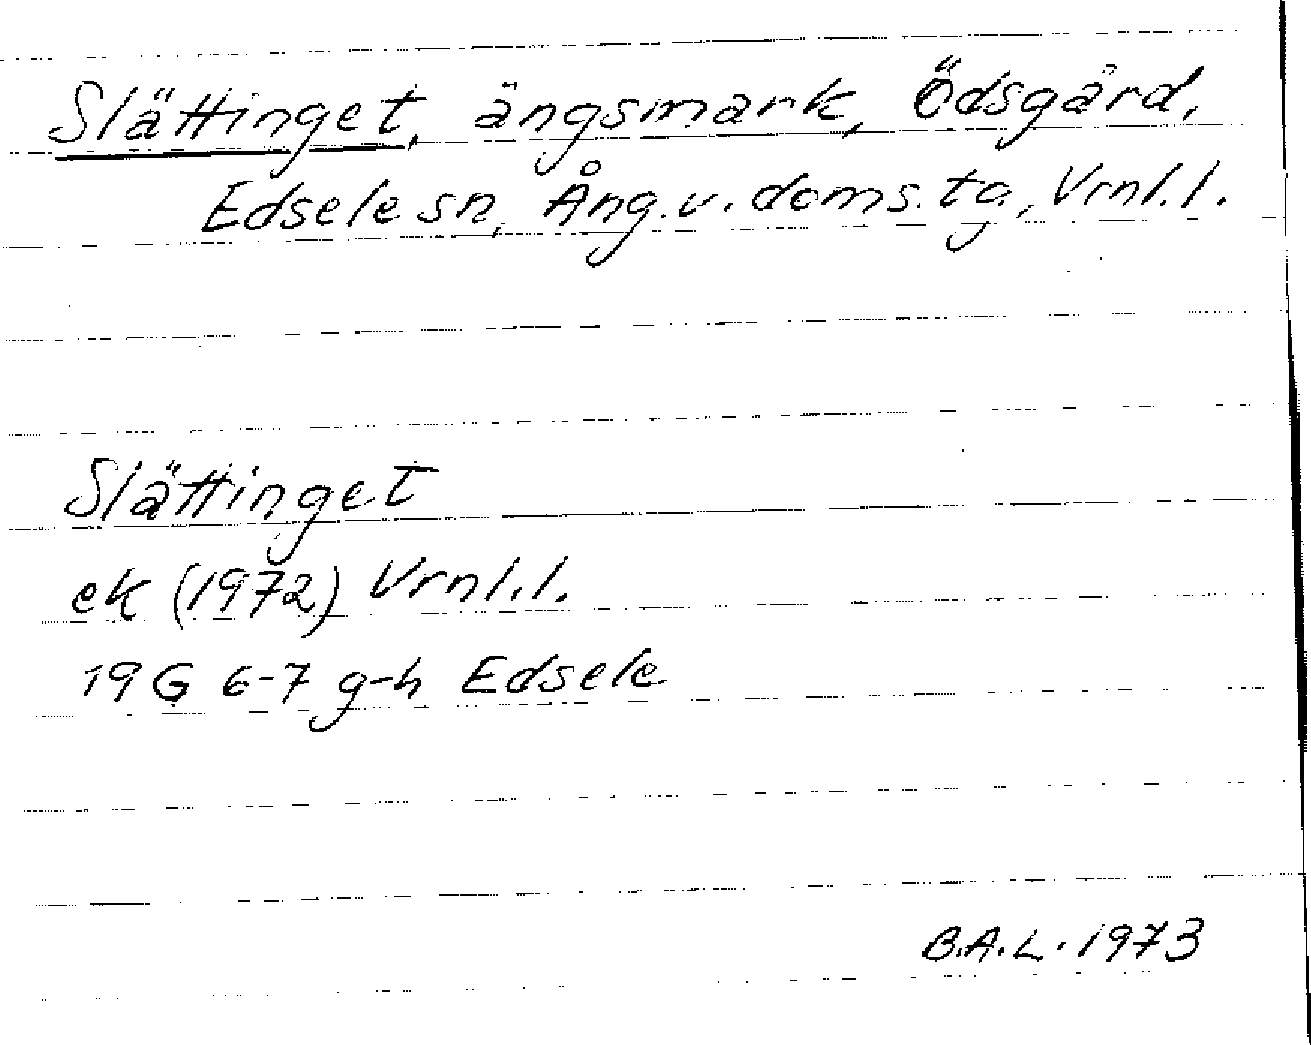 Slättinget, ängsmark, Ödsgård,
Edsele sn, Ång. v. doms. tg, Vrnl. l.
Slättinget
ek (1972) Vrnl. l.
19 G 6-7 g-h Edsele
B.A.L. 1973